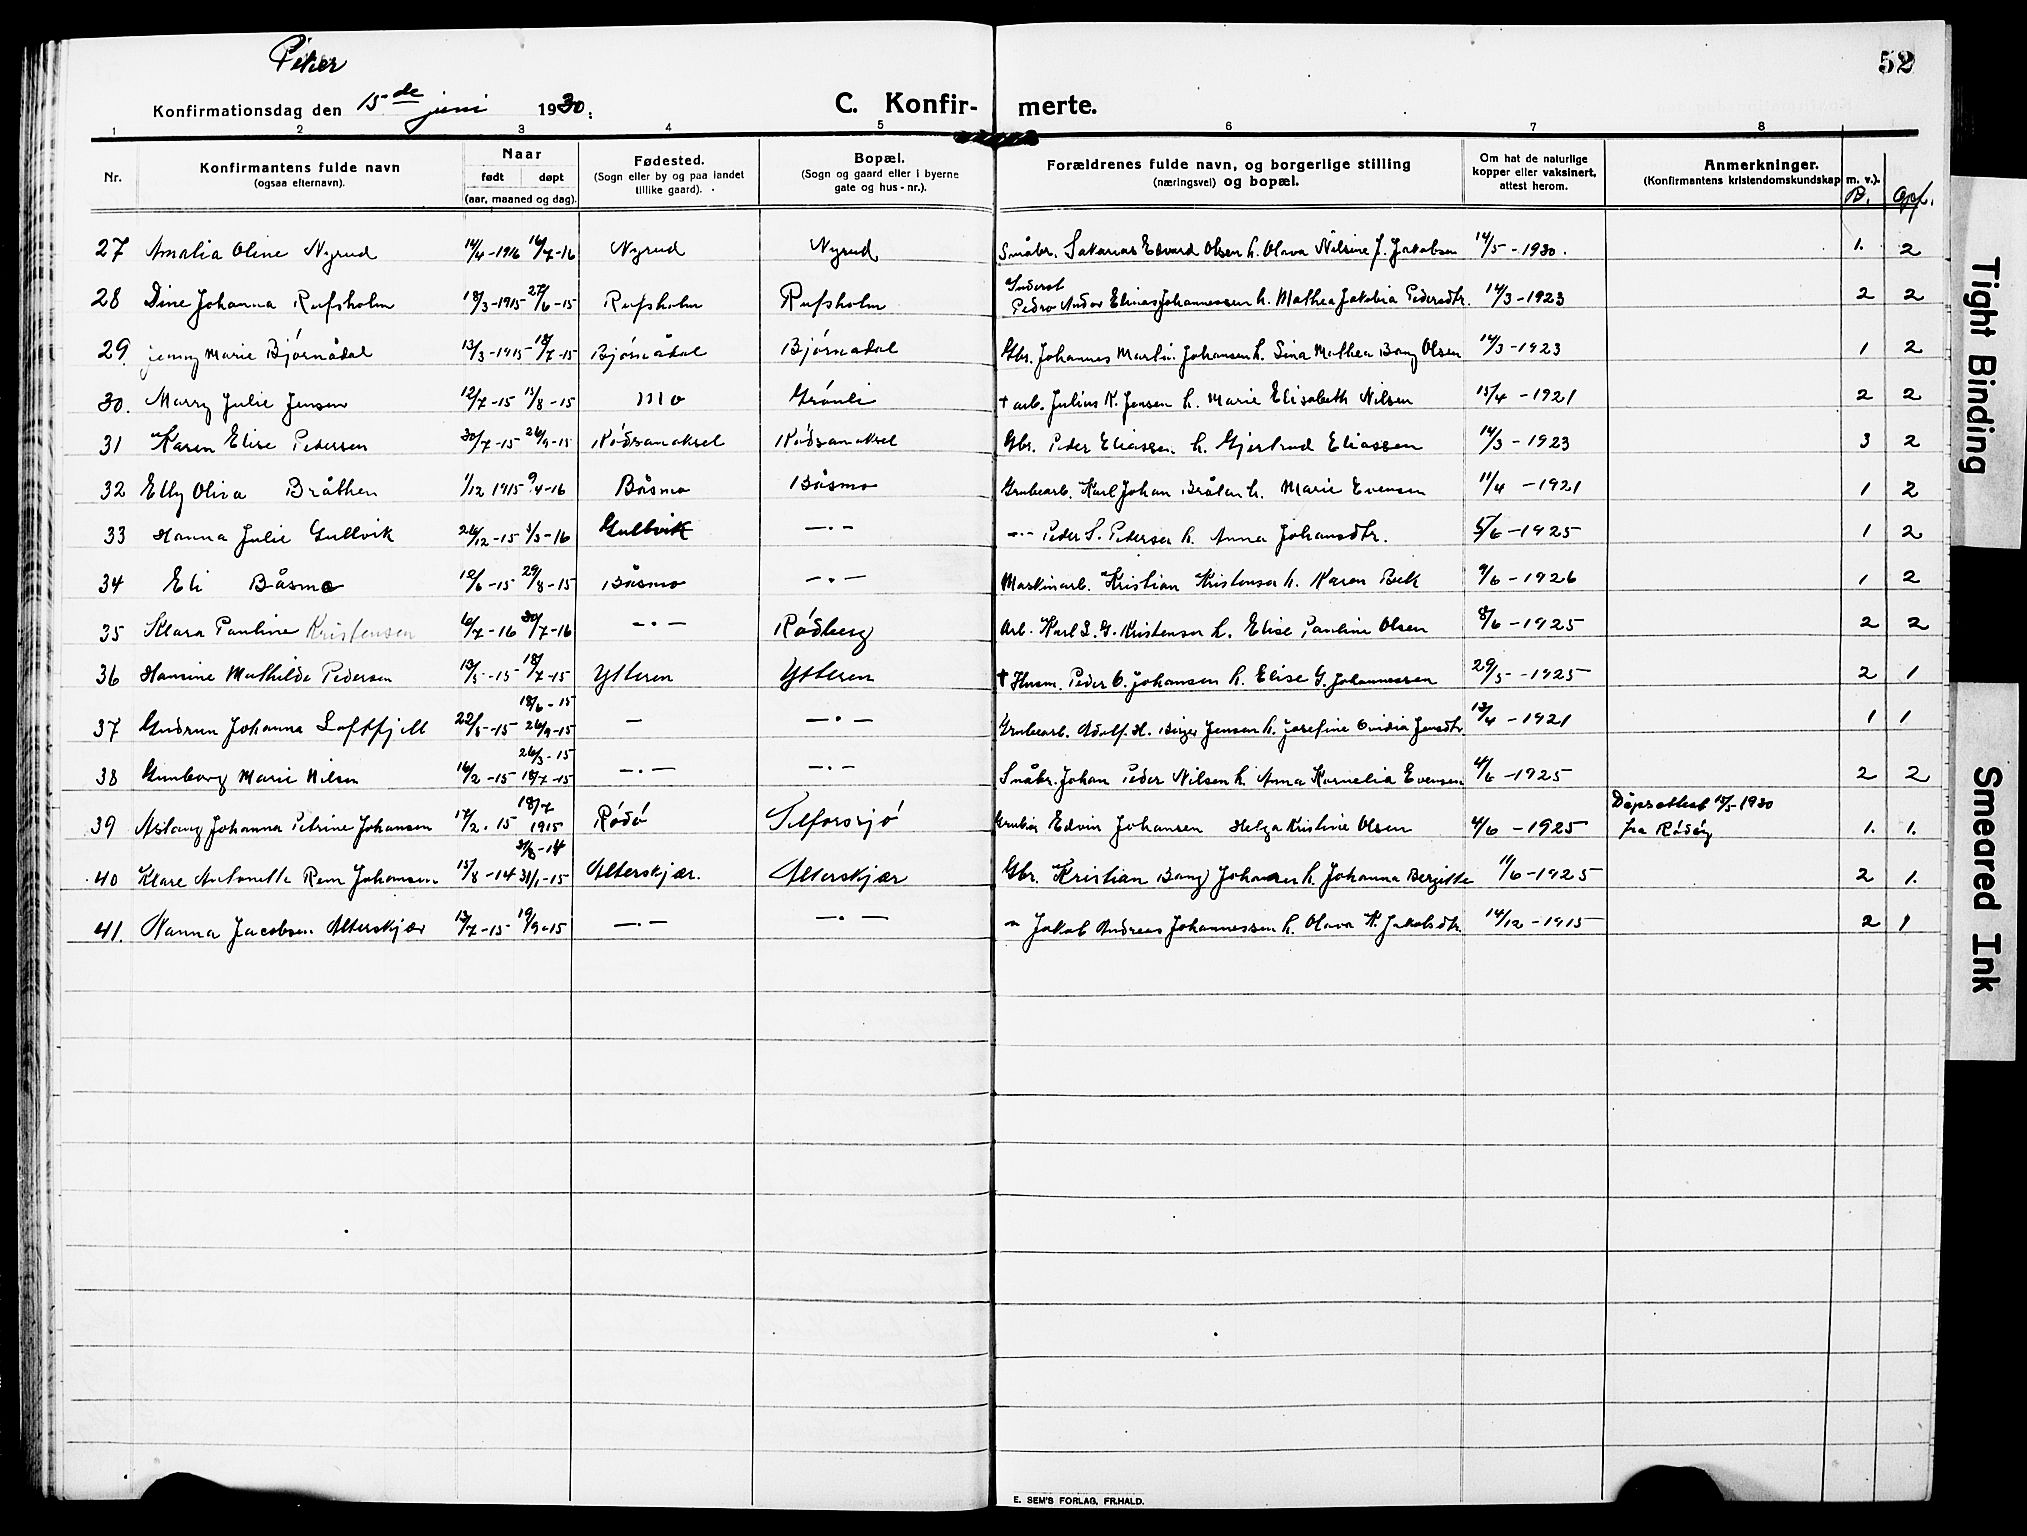 Piker
52
Konfirmationsdag den 15de juni 1930.
C. Konfir- merte.
1 2 3 4 5 6 7 8
Nr.
Konfirmantens fulde navn
(ogsaa efternavn).
Naar
født døpt
(aar, maaned og dag).
Fødested.
(Sogn eller by og paa landet
tillike gaard).
Bopæl.
(Sogn og gaard eller i byerne
gate og hus-nr.).
Forældrenes fulde navn, og borgerlige stilling
(næringsvei) og bopæl.
Om hat de naturlige
kopper eller vaksinert,
attest herom.
Anmerkninger.
(Konfirmantens kristendomskundskap m. v.).
B. Opf.
27 Amalia Oline Nyrud 14/4-1916 16/7-16 Nyrud Nyrud Småbr. Sakarias Edvard Olsen h. Olava Nilsine f. Jakobsen 14/5-1930. 1. 2
28 Dine Johanna Rufsholm 18/3-1915 27/6-15 Rufsholm Rufsholm Inderst Pedro Andor Elias Johannessen h. Mathea Jakobia Pedersdtr. 14/3-1923 2 2
29. Jenny Marie Bjørnådal 13/3-1915 18/7-15 Bjørnådal Bjørnadal Gbr. Johannes Martin Johansen h. Lina Mathea Bang Olsen 14/3-1923 1 2
30. Marry Julie Jensen 12/7-15 15/8-15 Mo Grønli † arb. Julius K. Jensen h. Marie Elisabeth Nilsen 15/4-1921 2 2
31 Karen Elise Pedersen 30/7-15 26/9-15 Rødsandaksel Rødsandaksel Gbr. Peder Eliassen h. Gjertrud Eliassen 14/3-1923 3 2
32 Elly Oliva Bråthen 1/12 1915 9/4-16 Båsmo Båsmo Grubearb. Karl Johan Bråten h. Marie Evensen 11/4-1921 1 2
33 Hanna Julie Gullvik 26/12-15 5/3-16 Gullvik —·— —·— Peder S. Pedersen h. Anna Johansdtr. 5/6-1925 1 2
34 Eli Båsmo 12/6-15 29/8-15 Båsmo —·— Maskinarb. Kristian Kristensen h. Karen Bek 9/6-1926 1 2
35 Klara Pauline Kristensen 6/7-16 30/7-16 —·— Rødberg Arb. Karl L. G. Kristensen h. Elise Pauline Olsen 8/6-1925 2 2
36 Hansine Mathilde Pedersen 13/5-15 18/7-15 Ytteren Ytteren † Husm. Peder O. Johansen h. Elise G. Johannessen 29/5-1925 2 1
18/6-15
37 Gudrun Johanna Loftfjell 22/5-15 26/9-15 — —·— Grubearb. Adolf H. Birger Jensen h. Josefine Ovidia Jensdtr 13/4-1921 1 1
26/3-15
38 Gunborg Marie Nilsen 16/2-15 18/7-15 —·— —·— Småbr. Johan Peder Nilsen h. Anna Kornelia Evensen 4/6-1925 2 2
18/7 Dåpsattest 15/5-1930
39 Aslaug Johanna Petrine Johansen 17/2.15 1915 Rødø Selforssjø Edvin Johansen Helga Kristine Olsen 4/6-1925 fra Rødøy 1. 1.
31/8-14
40 Klare Antonette Rem Johansen 15/8-14 31/1-15 Alterskjær. Alterskjær Gbr. Kristian Bang Johansen h. Johanna Bergitte 11/6-1925 2 1.
41. Nanna Jacobsen Alterskjær 13/7-15 19/9-15 —·— —·— " Jakob Andreas Johannessen h. Olava K. Jakobsdtr. 14/12-1915 2 1
E. SEM'S FORLAG, FR.HALD.
Tight Binding
Smeared Ink